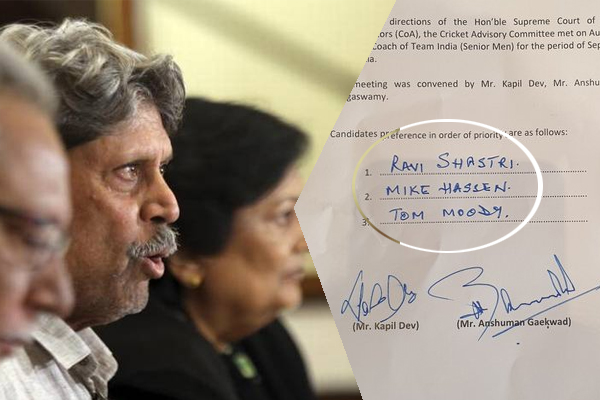 directions of the Hon'ble Supreme Court of
ors (CoA), the Cricket Advisory Committee met on Au
Coach of Team India (Senior Men) for the period of Sep
ia.
meeting was convened by Mr. Kapil Dev, Mr. Anshu
gaswamy.
Candidates preference in order of priority are as follows:
1. RAVI SHASTRI.
2. MIKE HASSEN.
3. TOM MOODY.
(Mr. Kapil Dev) (Mr. Anshuman Gaekwad)